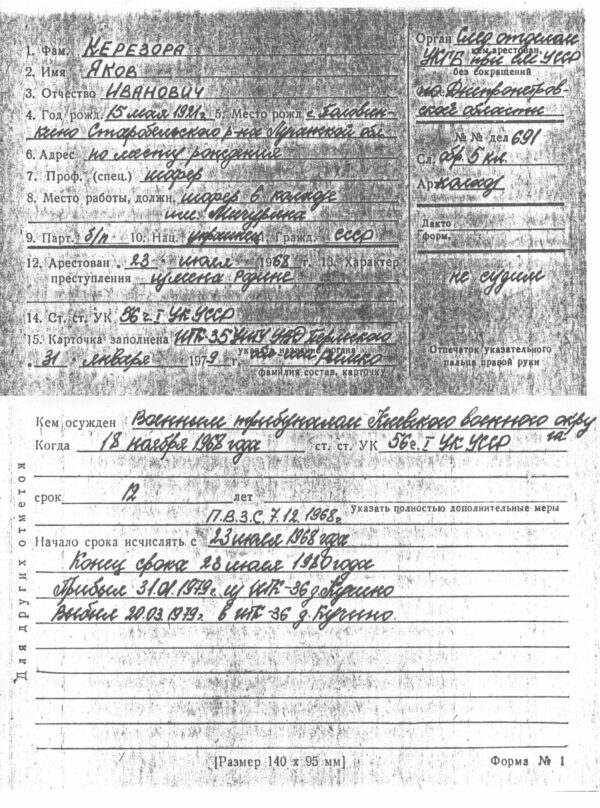 1. Фам. КЕРЕЗОРА
2. Имя ЯКОВ
3. Отчество ИВАНОВИЧ
4. Год рожд. 15 мая 1921 г. 5. Место рожд. с. Половин-
кино Старобельского р-на Луганской обл.
6. Адрес по месту рождения
7. Проф. (спец.) шофер
8. Место работы, должн. шофер в колхозе
им. Мичурина
9. Парт. б/п 10. Нац. украинец 11. Гражд. СССР
12. Арестован „23“ июля 1968 г. 13. Характер
преступления измена Родине
14. Ст. ст. УК 56 ч. I УК УССР
15. Карточка заполнена ИТК-35 УИТУ УВД Пермского
указать название органа
„31“ января 1979 г.
фамилия состав. карточку
Орган След отделом
кем арестован,
УКГБ при СМ УССР
без сокращений
по Днепропетров-
ской области
№ № дел 691
Сл. обр. 5 кл.
Ар.
Дакто
форм.
не судим
Отпечаток указательного
пальца правой руки
Кем осужден Военным трибуналом Киевского военного окру
га
Когда 18 ноября 1968 года ст. ст. УК 56 ч. I УК УССР
срок 12 лет
указать полностью дополнительные меры
П.В.З.С. 7.12.1968 г.
Начало срока исчислять с 23 июля 1968 года
Конец срока 23 июля 1980 года
Прибыл 31.01.1979 г. из ИТК-36 д. Кучино
Выбыл 20.03.1979 г. в ИТК-36 д. Кучино.
Для других отметок
[Размер 140 х 95 мм] Форма № 1